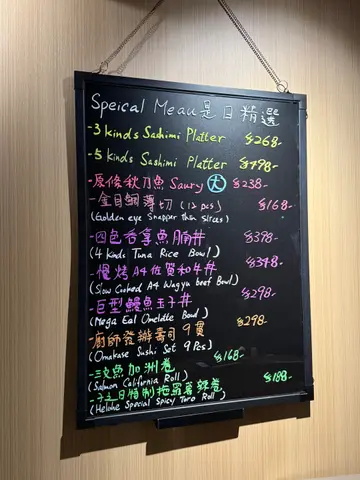 Speical Meau是日精選
-3 kinds Sashimi Platter $268-
-5 kinds Sashimi Platter $498-
-原條秋刀魚 Saury 大 $238-
-金目鯛薄切 (12 pcs) $168-
(Golden eye Snapper thin slices)
-四色吞拿魚腩丼 $398-
(4 kinds Tuna Rice Bowl)
-慢烤A4佐賀和牛丼 $348-
(Slow Cooked A4 Wagyu beef Bowl)
-巨型鰻魚玉子丼 $298-
(Mega Eal Omelette Bowl)
-廚師發辦壽司 9貫 $298-
(Omakase Sushi Set 9 Pcs)
-三文魚加洲卷 $168-
(Salmon California Roll)
特制拖羅蔥辣卷 $188-
Special Spicy Toro Roll)